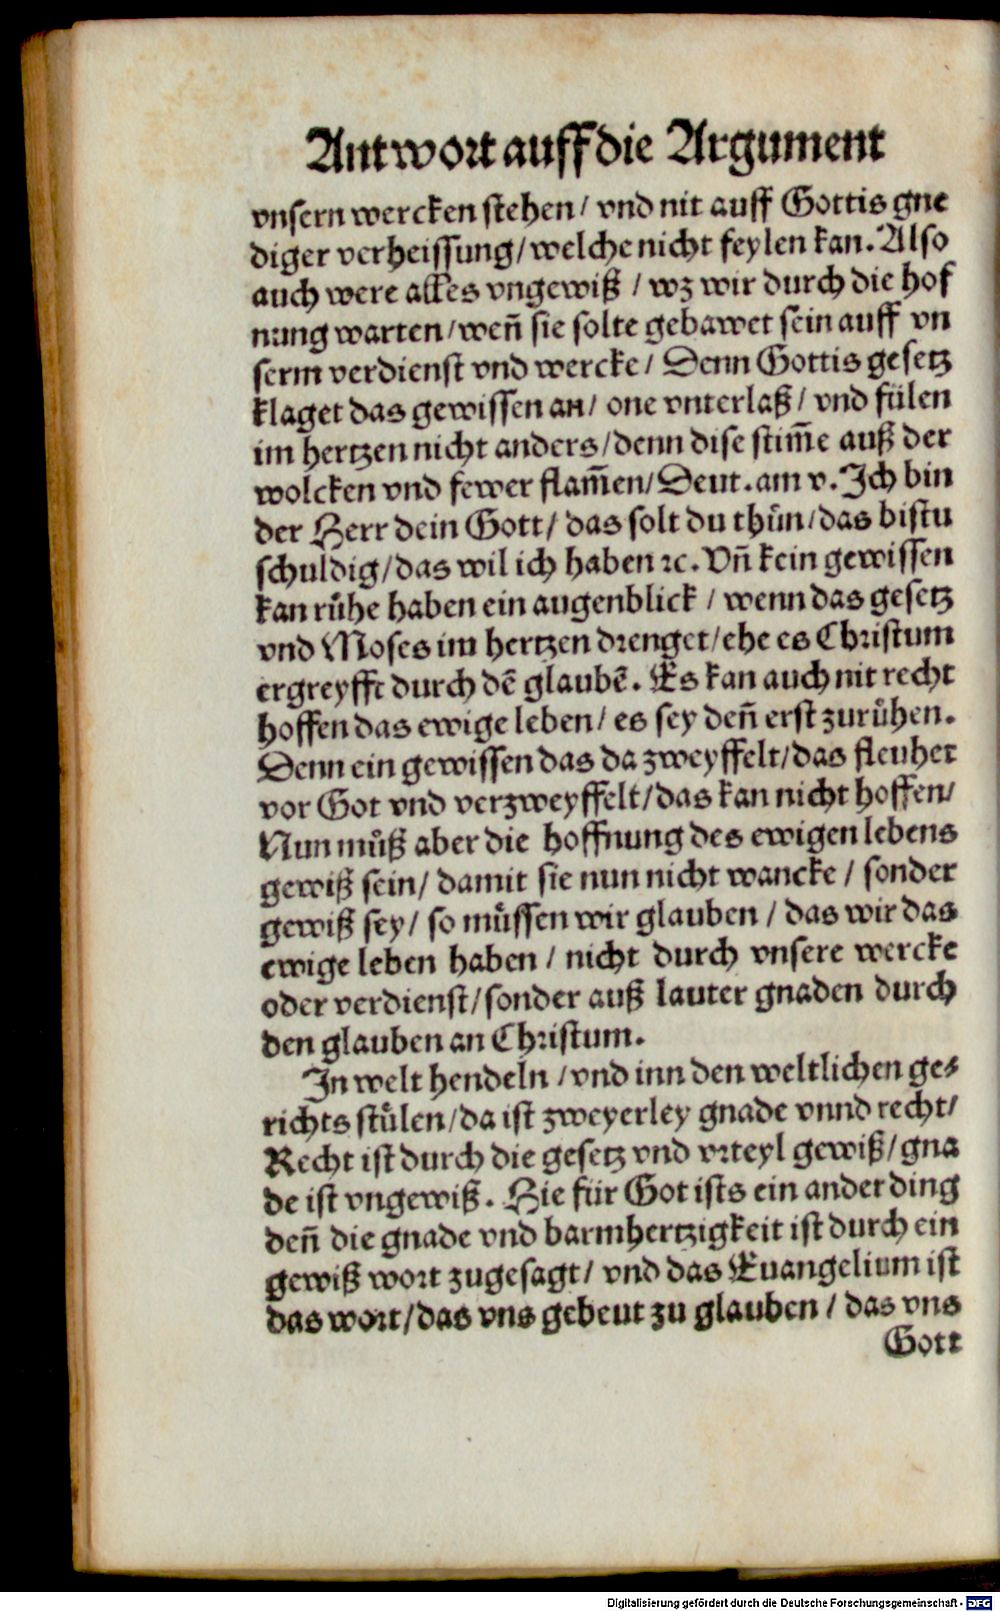 Antwort auff die Argument
vnsern wercken stehen / vnd nit auff Gottis gne
diger verheissung / welche nicht feylen kan. Also
auch were alles vngewiß / wz wir durch die hof
nung warten / weñ sie solte gebawet sein auff vn
serm verdienst vnd wercke / Denn Gottis gesetz
klaget das gewissen an / one vnterlaß / vnd fülen
im hertzen nicht anders / denn dise stim̃e auß der
wolcken vnd fewer flam̃en / Deut. am v. Ich bin
der Herr dein Gott / das solt du thůn / das bistu
schuldig / das wil ich haben ꝛc. Vñ kein gewissen
kan růhe haben ein augenblick / wenn das gesetz
vnd Moses im hertzen drenget / ehe es Christum
ergreyfft durch dẽ glaubẽ. Es kan auch nit recht
hoffen das ewige leben / es sey deñ erst zurůhen.
Denn ein gewissen das da zweyffelt / das fleuhet
vor Got vnd verzweyffelt / das kan nicht hoffen /
Nun můß aber die hoffnung des ewigen lebens
gewiß sein / damit sie nun nicht wancke / sonder
gewiß sey / so můssen wir glauben / das wir das
ewige leben haben / nicht durch vnsere wercke
oder verdienst / sonder auß lauter gnaden durch
den glauben an Christum.
In welt hendeln / vnd inn den weltlichen ge⸗
richts stůlen / da ist zweyerley gnade vnnd recht /
Recht ist durch die gesetz vnd vrteyl gewiß / gna
de ist vngewiß. Hie für Got ists ein ander ding
deñ die gnade vnd barmhertzigkeit ist durch ein
gewiß wort zugesagt / vnd das Euangelium ist
das wort / das vns gebeut zu glauben / das vns
Gott
Digitalisierung gefördert durch die Deutsche Forschungsgemeinschaft - DFG